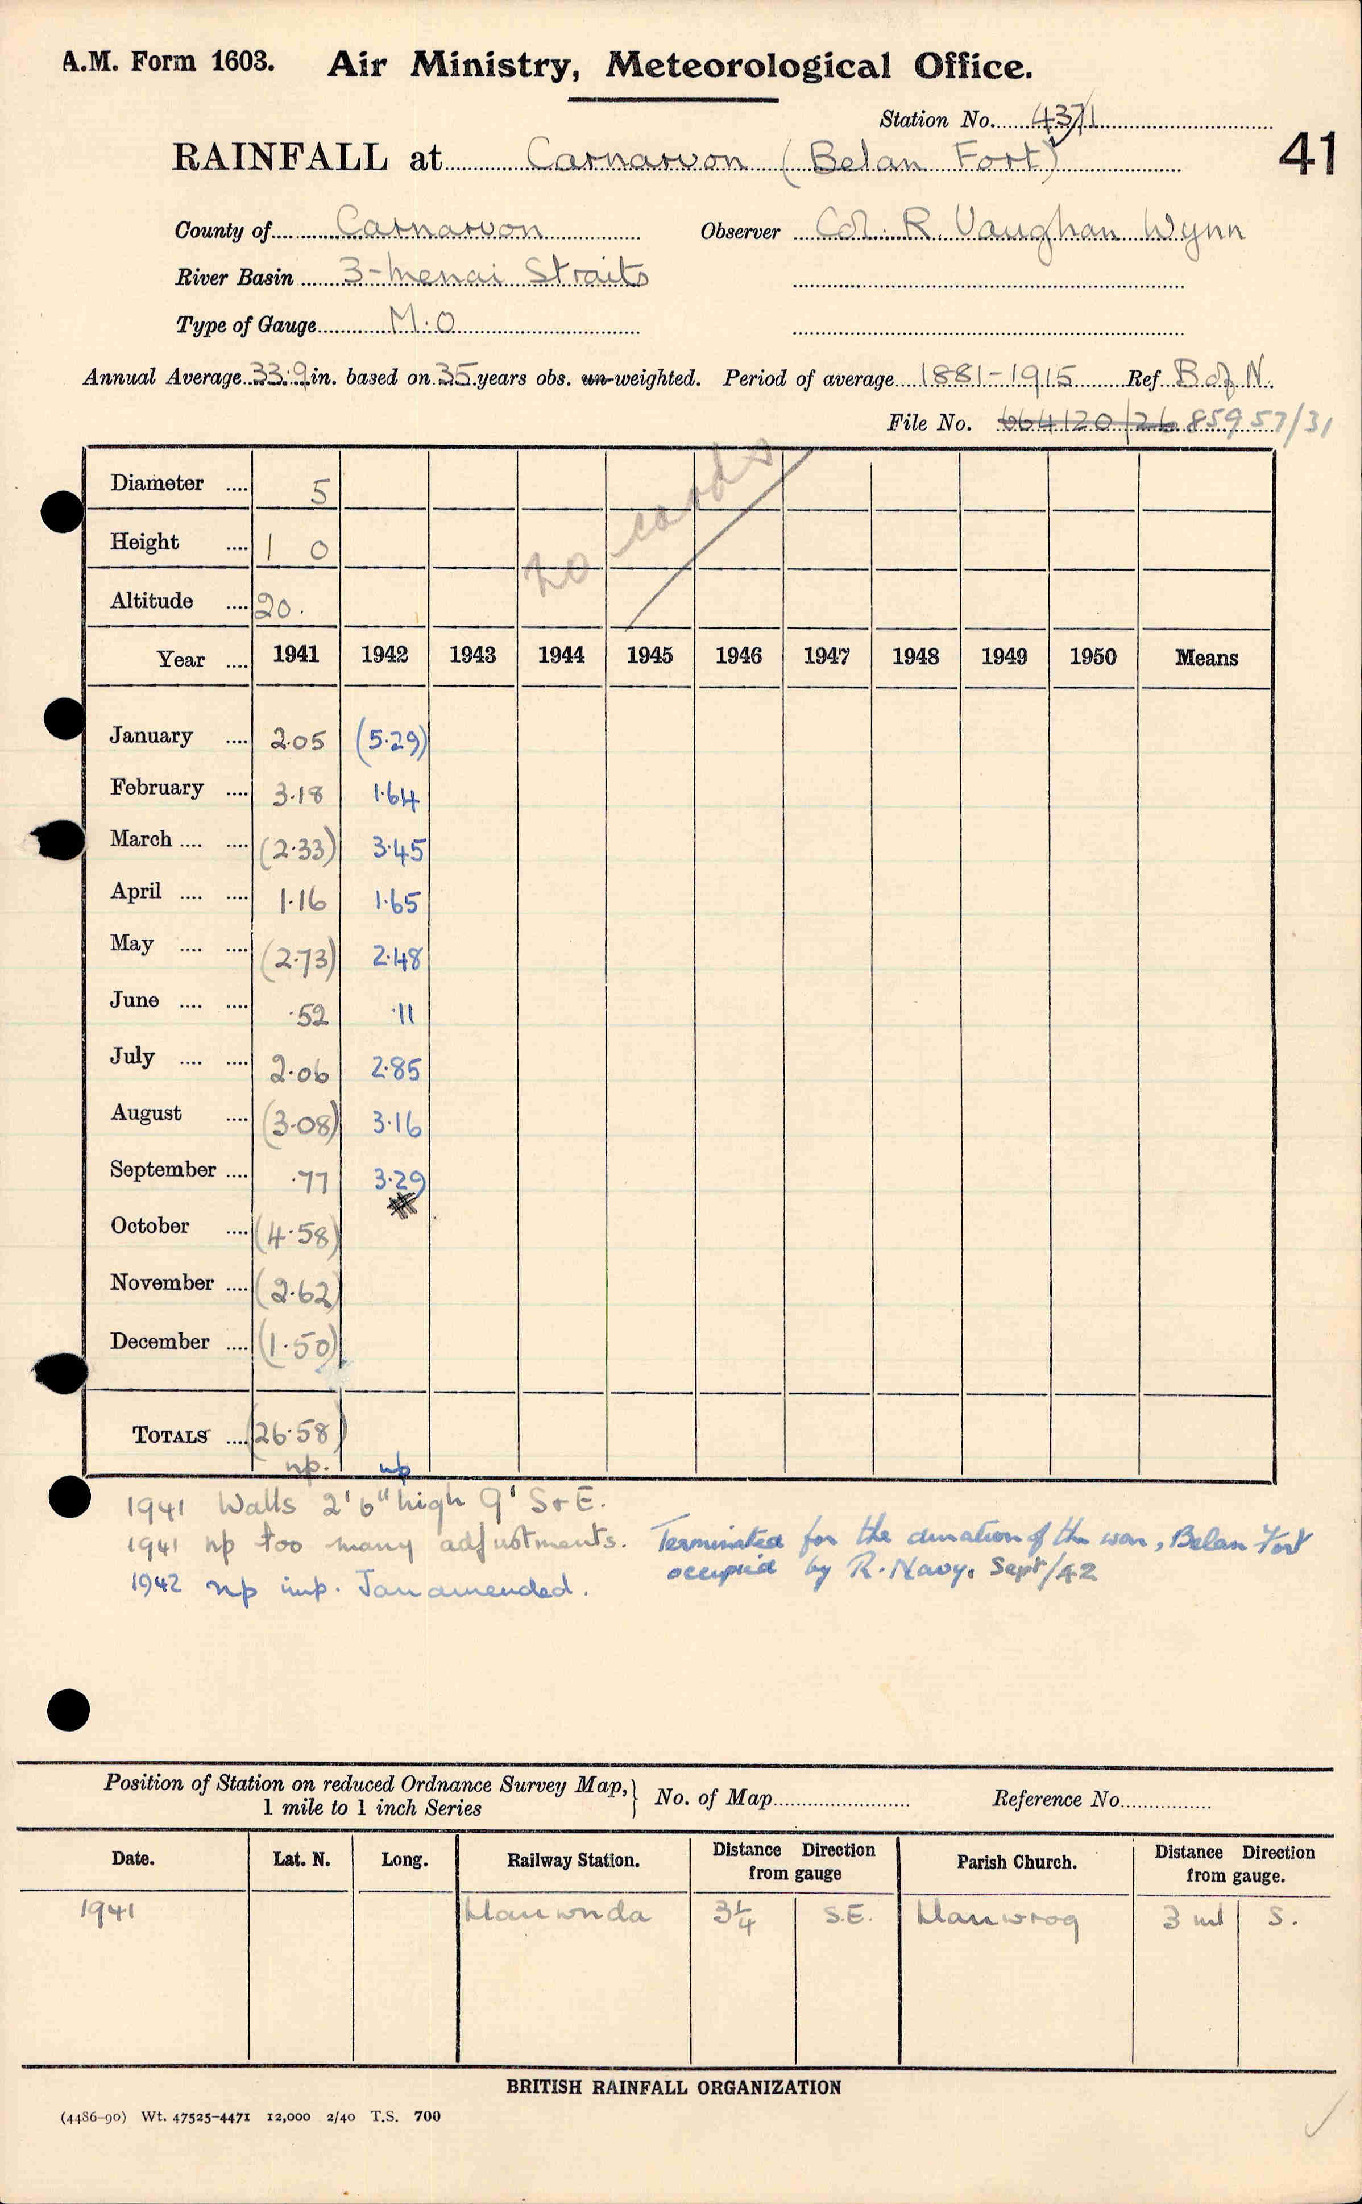 A.M. Form 1603. Air Ministry, Meteorological Office.
Station No. 4371
RAINFALL at Carnarvon (Belan Fort)
41
County of Carnarvon Observer Col. R. Vaughan Wynn
River Basin 3-Menai Straits
Type of Gauge M.O
Annual Average 33.9 in. based on 35 years obs. un-weighted. Period of average 1881-1915 Ref B of N.
File No. 664120/26 85957/31
no cards
Diameter .... 5
Height .... 1 0
Altitude .... 20.
Year .... 1941 1942 1943 1944 1945 1946 1947 1948 1949 1950 Means
January .... 2.05 (5.29)
February .... 3.18 1.64
March .... .... (2.33) 3.45
April .... .... 1.16 1.65
May .... .... (2.73) 2.48
June .... .... .52 .11
July .... .... 2.06 2.85
August .... (3.08) 3.16
September .... .77 3.29
October .... (4.58)
November .... (2.62)
December .... (1.50)
TOTALS .... (26.58)
np. np
1941 Walls 2'6" high 9' S & E.
1941 np too many adjustments. Terminated for the duration of the war, Belan Fort
occupied by R. Navy. Sept/42
1942 np imp. Jan amended.
Position of Station on reduced Ordnance Survey Map,} No. of Map Reference No.
1 mile to 1 inch Series
Date. Lat. N. Long. Railway Station. Distance Direction from gauge Parish Church. Distance Direction from gauge.
1941 Llanwnda 3¼ S.E. Llanwrog 3 ml S.
BRITISH RAINFALL ORGANIZATION
(4486-90) Wt. 47525-4471 12,000 2/40 T.S. 700